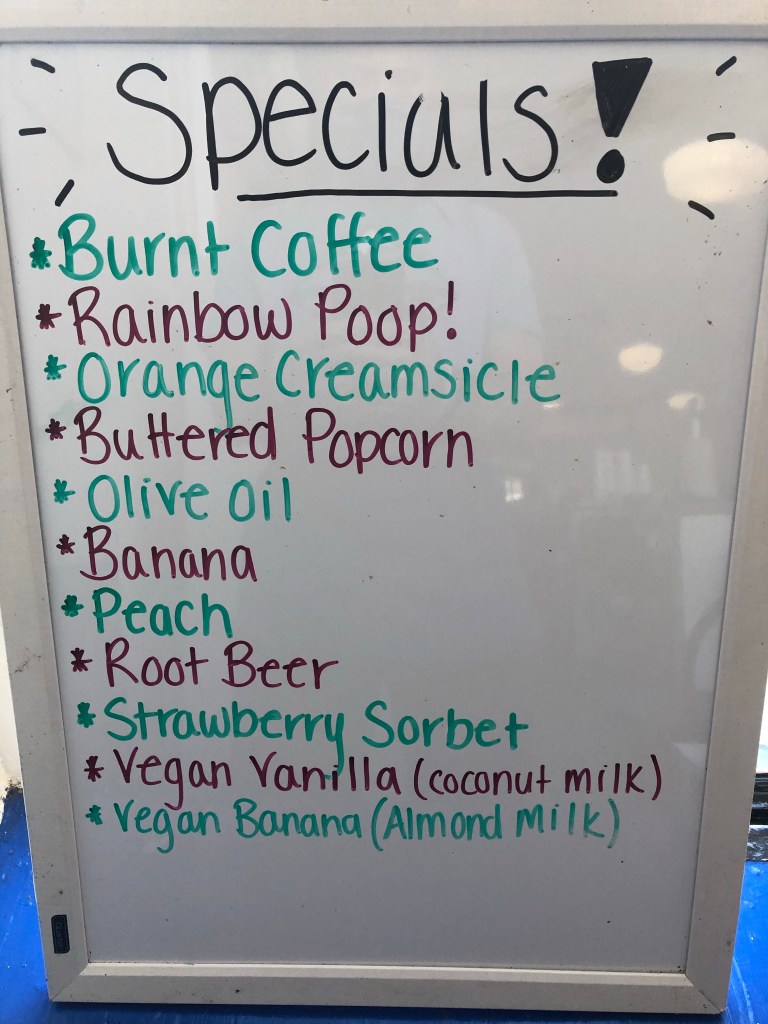 Specials!
* Burnt Coffee
* Rainbow Poop!
* Orange Creamsicle
* Buttered Popcorn
* Olive Oil
* Banana
* Peach
* Root Beer
* Strawberry Sorbet
* Vegan Vanilla (coconut milk)
* Vegan Banana (Almond Milk)